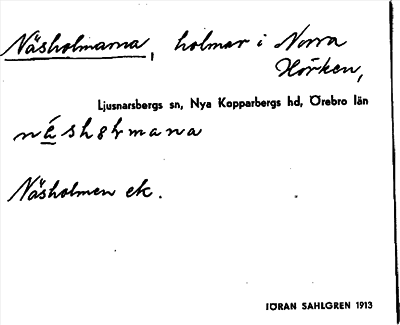 Näsholmarna, holmar i Norra
Hörken,
Ljusnarsbergs sn, Nya Kopparbergs hd, Örebro län
Näsholmen ek.
JÖRAN SAHLGREN 1913